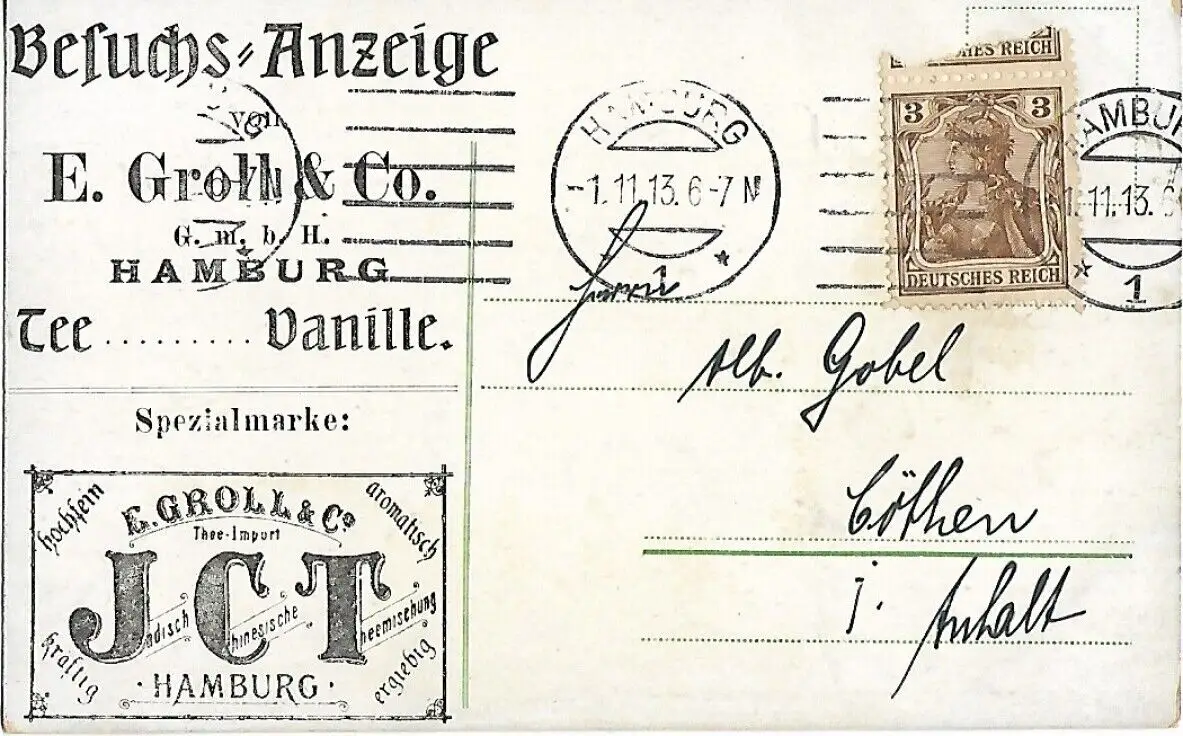 Besuchs-Anzeige
von
E. Groll & Co.
G. m. b. H.
HAMBURG
Tee ......... Vanille.
Spezialmarke:
hochfein
aromatisch
E. GROLL & Co
Thee-Import
JCT
Jndisch Chinesische Theemischung
kräftig
ergiebig
· HAMBURG ·
HAMBURG
-1.11.13. 6-7 N
1
HES REICH
3 3
DEUTSCHES REICH
HAMBUR
1.11.13. 6
1
Herrn
Alb. Gobel
Cöthen
i. Anhalt